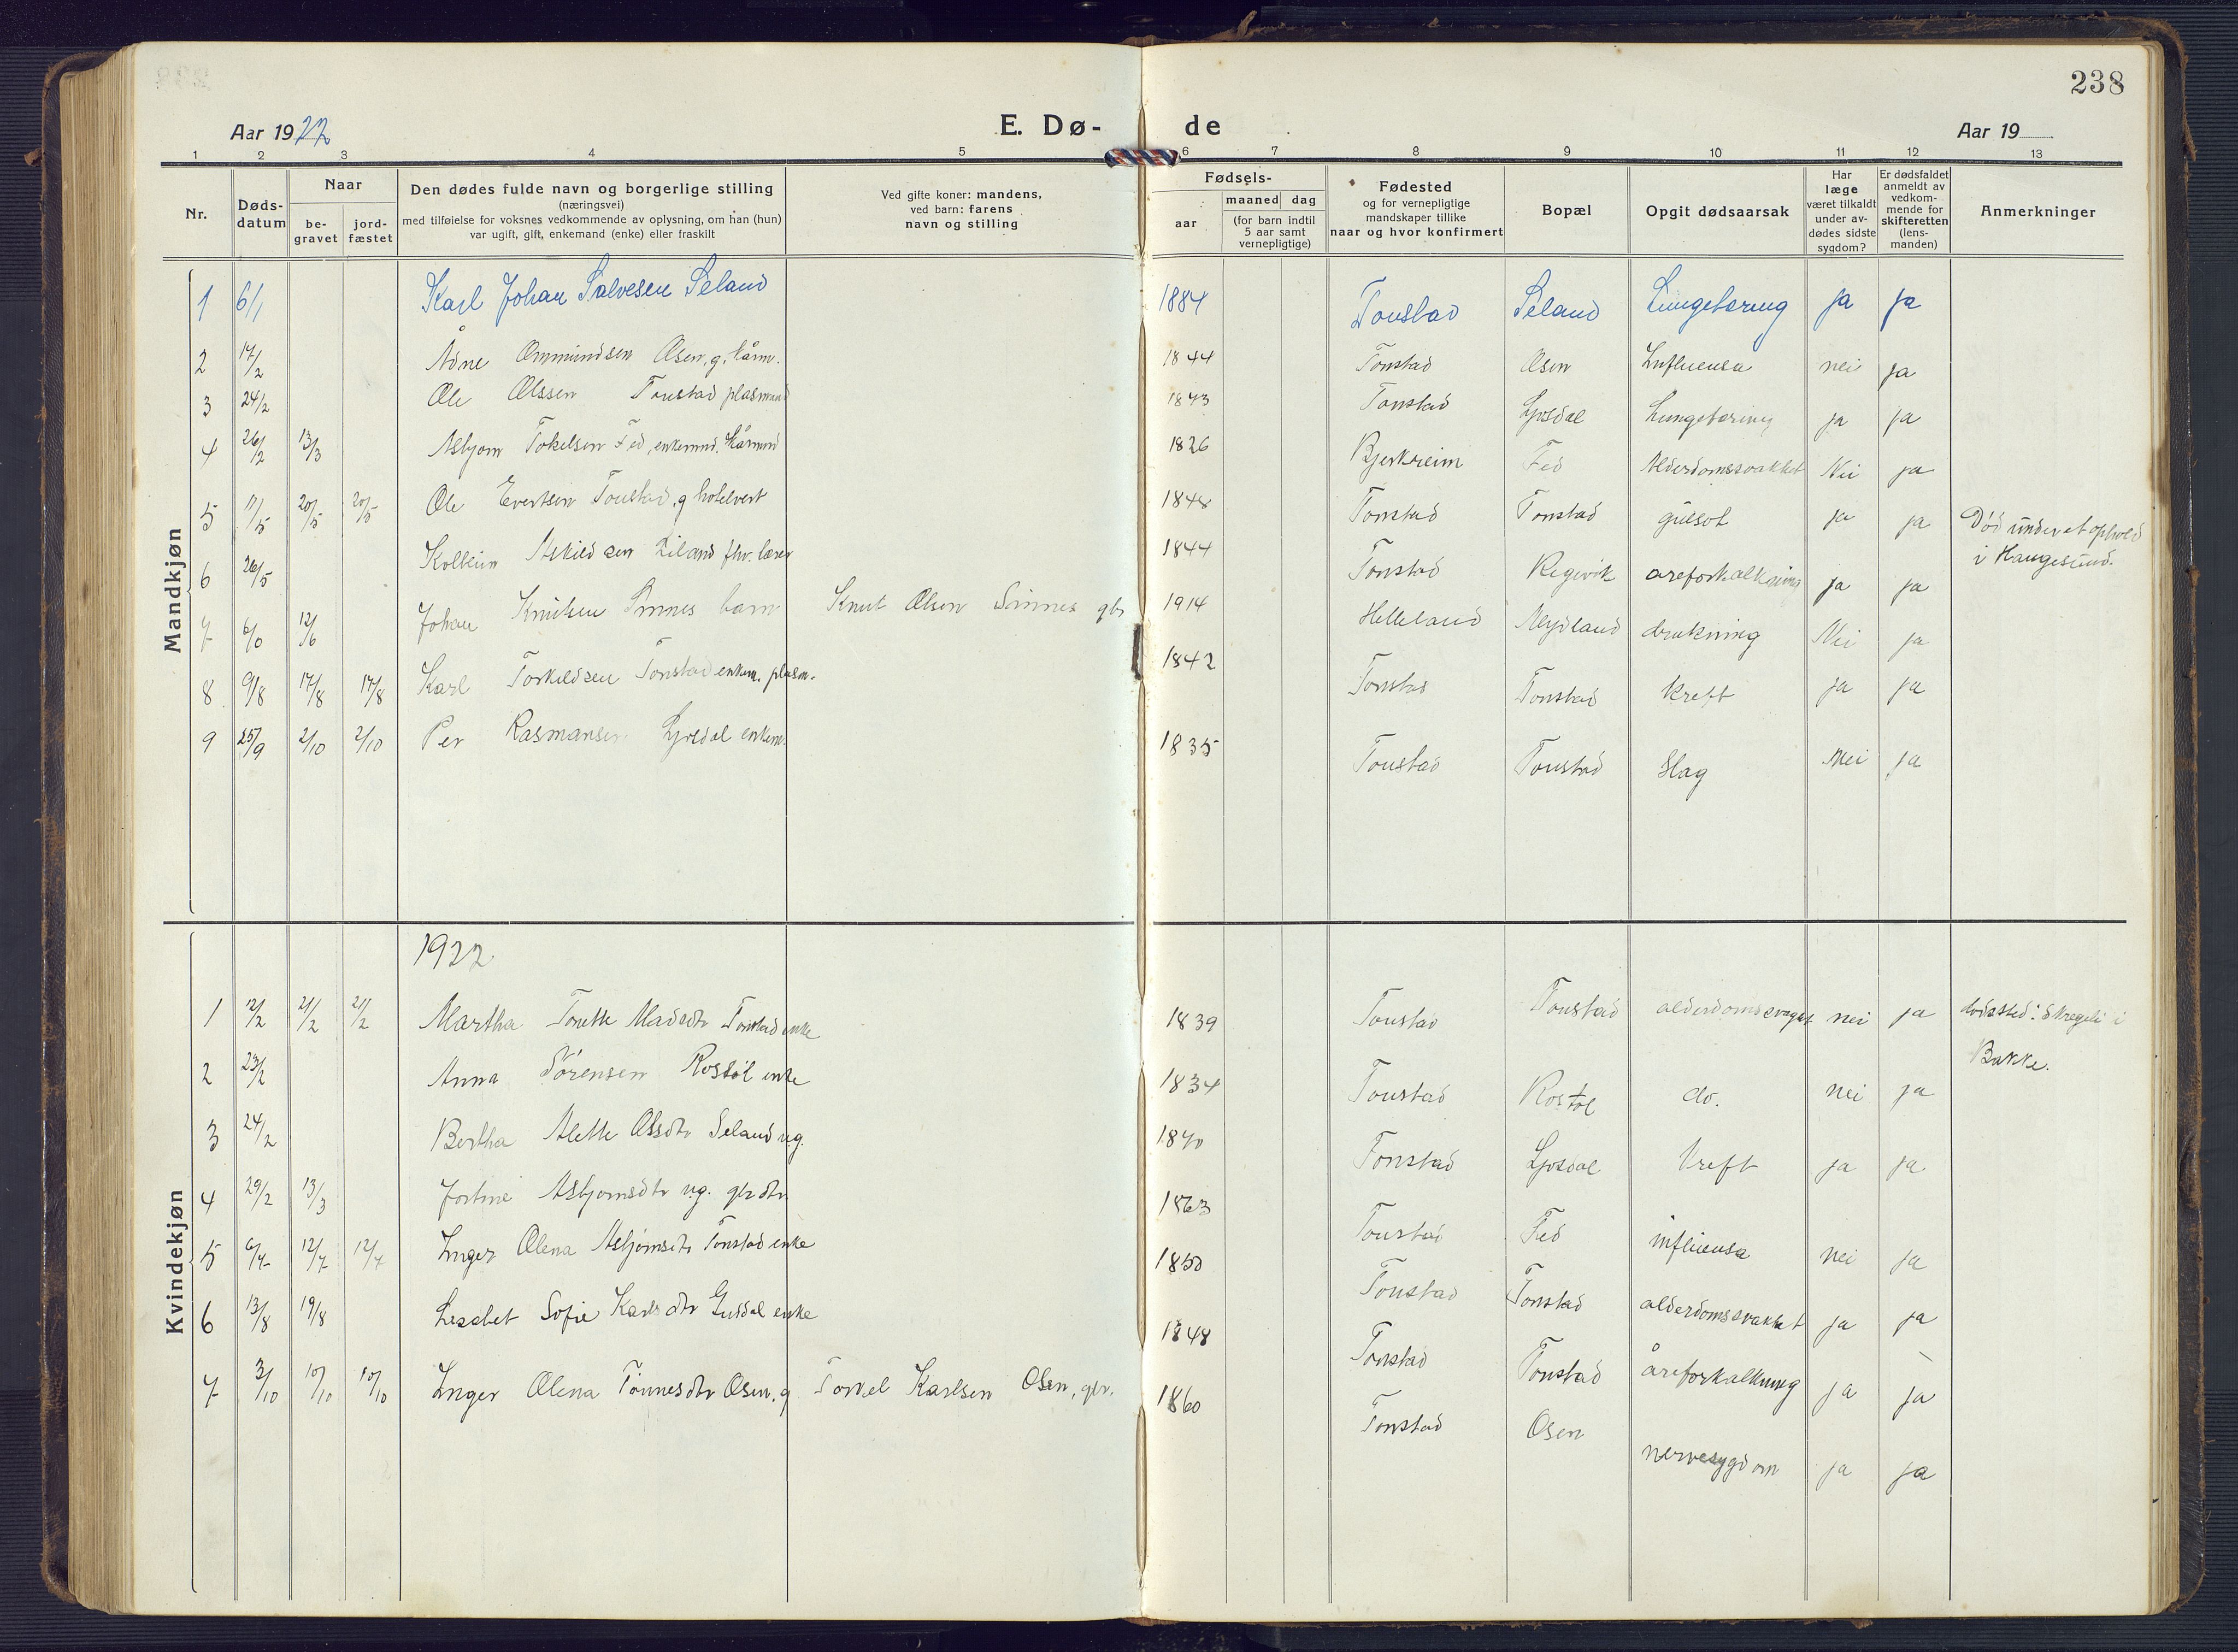 238
Aar 1922
E. Dø-
de
Aar 19
1 2 3 4 5 6 7 8 9 10 11 12 13
Nr.
Døds-
datum
Naar
be-
gravet
jord-
fæstet
Den dødes fulde navn og borgerlige stilling
(næringsvei)
med tilføielse for voksnes vedkommende av oplysning, om han (hun)
var ugift, gift, enkemand (enke) eller fraskilt
Ved gifte koner: mandens,
ved barn: farens
navn og stilling
Fødsels-
aar
maaned dag
(for barn indtil
5 aar samt
vernepligtige)
Fødested
og for vernepligtige
mandskaper tillike
naar og hvor konfirmert
Bopæl
Opgit dødsaarsak
Har
læge
været tilkaldt
under av-
dødes sidste
sygdom?
Er dødsfaldet
anmeldt av
vedkom-
mende for
skifteretten
(lens-
manden)
Anmerkninger
Mandkjøn
1 6/1 Karl Johan Salvesen Seland 1884 Tonstad Seland Lungetæring ja ja
2 17/2 Ådne Ommundsen Osen, g. kårm. 1844 Tonstad Osen Influensa nei ja
3 24/2 Ole Olssen Tonstad plasmand 1843 Tonstad Ljosdal Lungetæring ja ja
4 26/2 13/3 Asbjørn Tokelsen Fed, enkemnd. kårmnd 1826 Bjerkreim Fed Alderdomssvakhet Nei ja
5 17/5 20/5 20/5 Ole Evertsen Tonstad, g hotelvert 1848 Tonstad Tonstad gulsot ja ja Død under et ophold
i Haugesund.
6 26/5 Kolbein Askildsen fhv. lærer 1844 Tonstad Regevik areforkalkning ja ja
7 12/6 Johan Knutsen Sinnes barn Knut Olsen Sinnes gbr 1914 Helleland drukning Nei ja
8 9/8 17/8 17/8 Karl Torkildsen Tonstad enkem. plasm. 1842 Tonstad Tonstad kreft ja ja
9 25/9 2/10 2/10 Per Rasmansen Ljosdal enkem. 1835 Tonstad Tonstad Slag Nei ja
Kvindekjøn
1922
1 12/2 21/2 21/2 Martha Tonette Madsdtr Tonstad enke 1839 Tonstad Tonstad alderdomssvaghet nei ja dødssted: Skregeli i
Bakke.
2 23/2 Anna Sørensen Rostøl enke 1834 Tonstad Rostøl do. nei ja
3 24/2 Bertha Alette Olsdtr Seland ug. 1840 Tonstad Ljosdal kreft ja ja
4 29/2 13/3 Jortine Asbjornsdtr ug. gbrdtr. 1863 Tonstad Fed influensa nei ja
5 6/4 12/4 12/4 Inger Olena Asbjørnsdtr Tonstad enke 1850 Tonstad Tonstad alderdomssvakhet ja ja
6 13/8 19/8 Lisabet Sofie Karlsdtr Gusdal enke 1848 Tonstad Tonstad åreforkalkning ja ja
7 3/10 10/10 10/10 Inger Olena Tønnesdtr Osen. g Torkel Karlsen Osen, gbr. 1860 Tonstad Osen nervesygdom ja ja